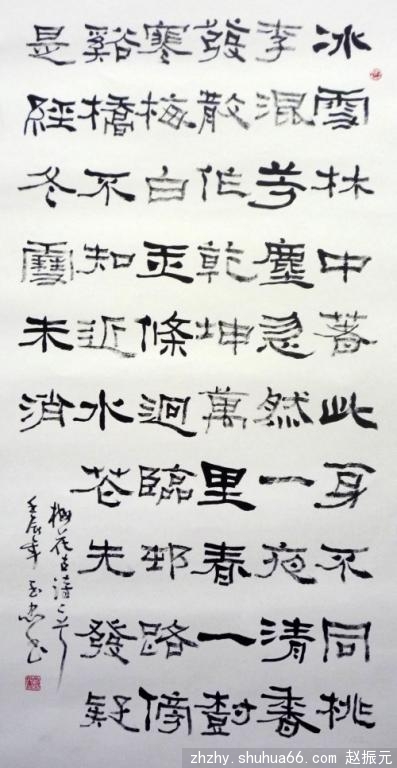 冰雪林中著此身不同桃
李混芳塵忽然一夜清香
發散作乾坤萬里春一樹
寒梅白玉條迥臨邨路傍
谿橋不知近水花先發疑
是經冬雪未消
梅花古詩二首
壬辰年
zhzhy.shuhua66.com 赵振元